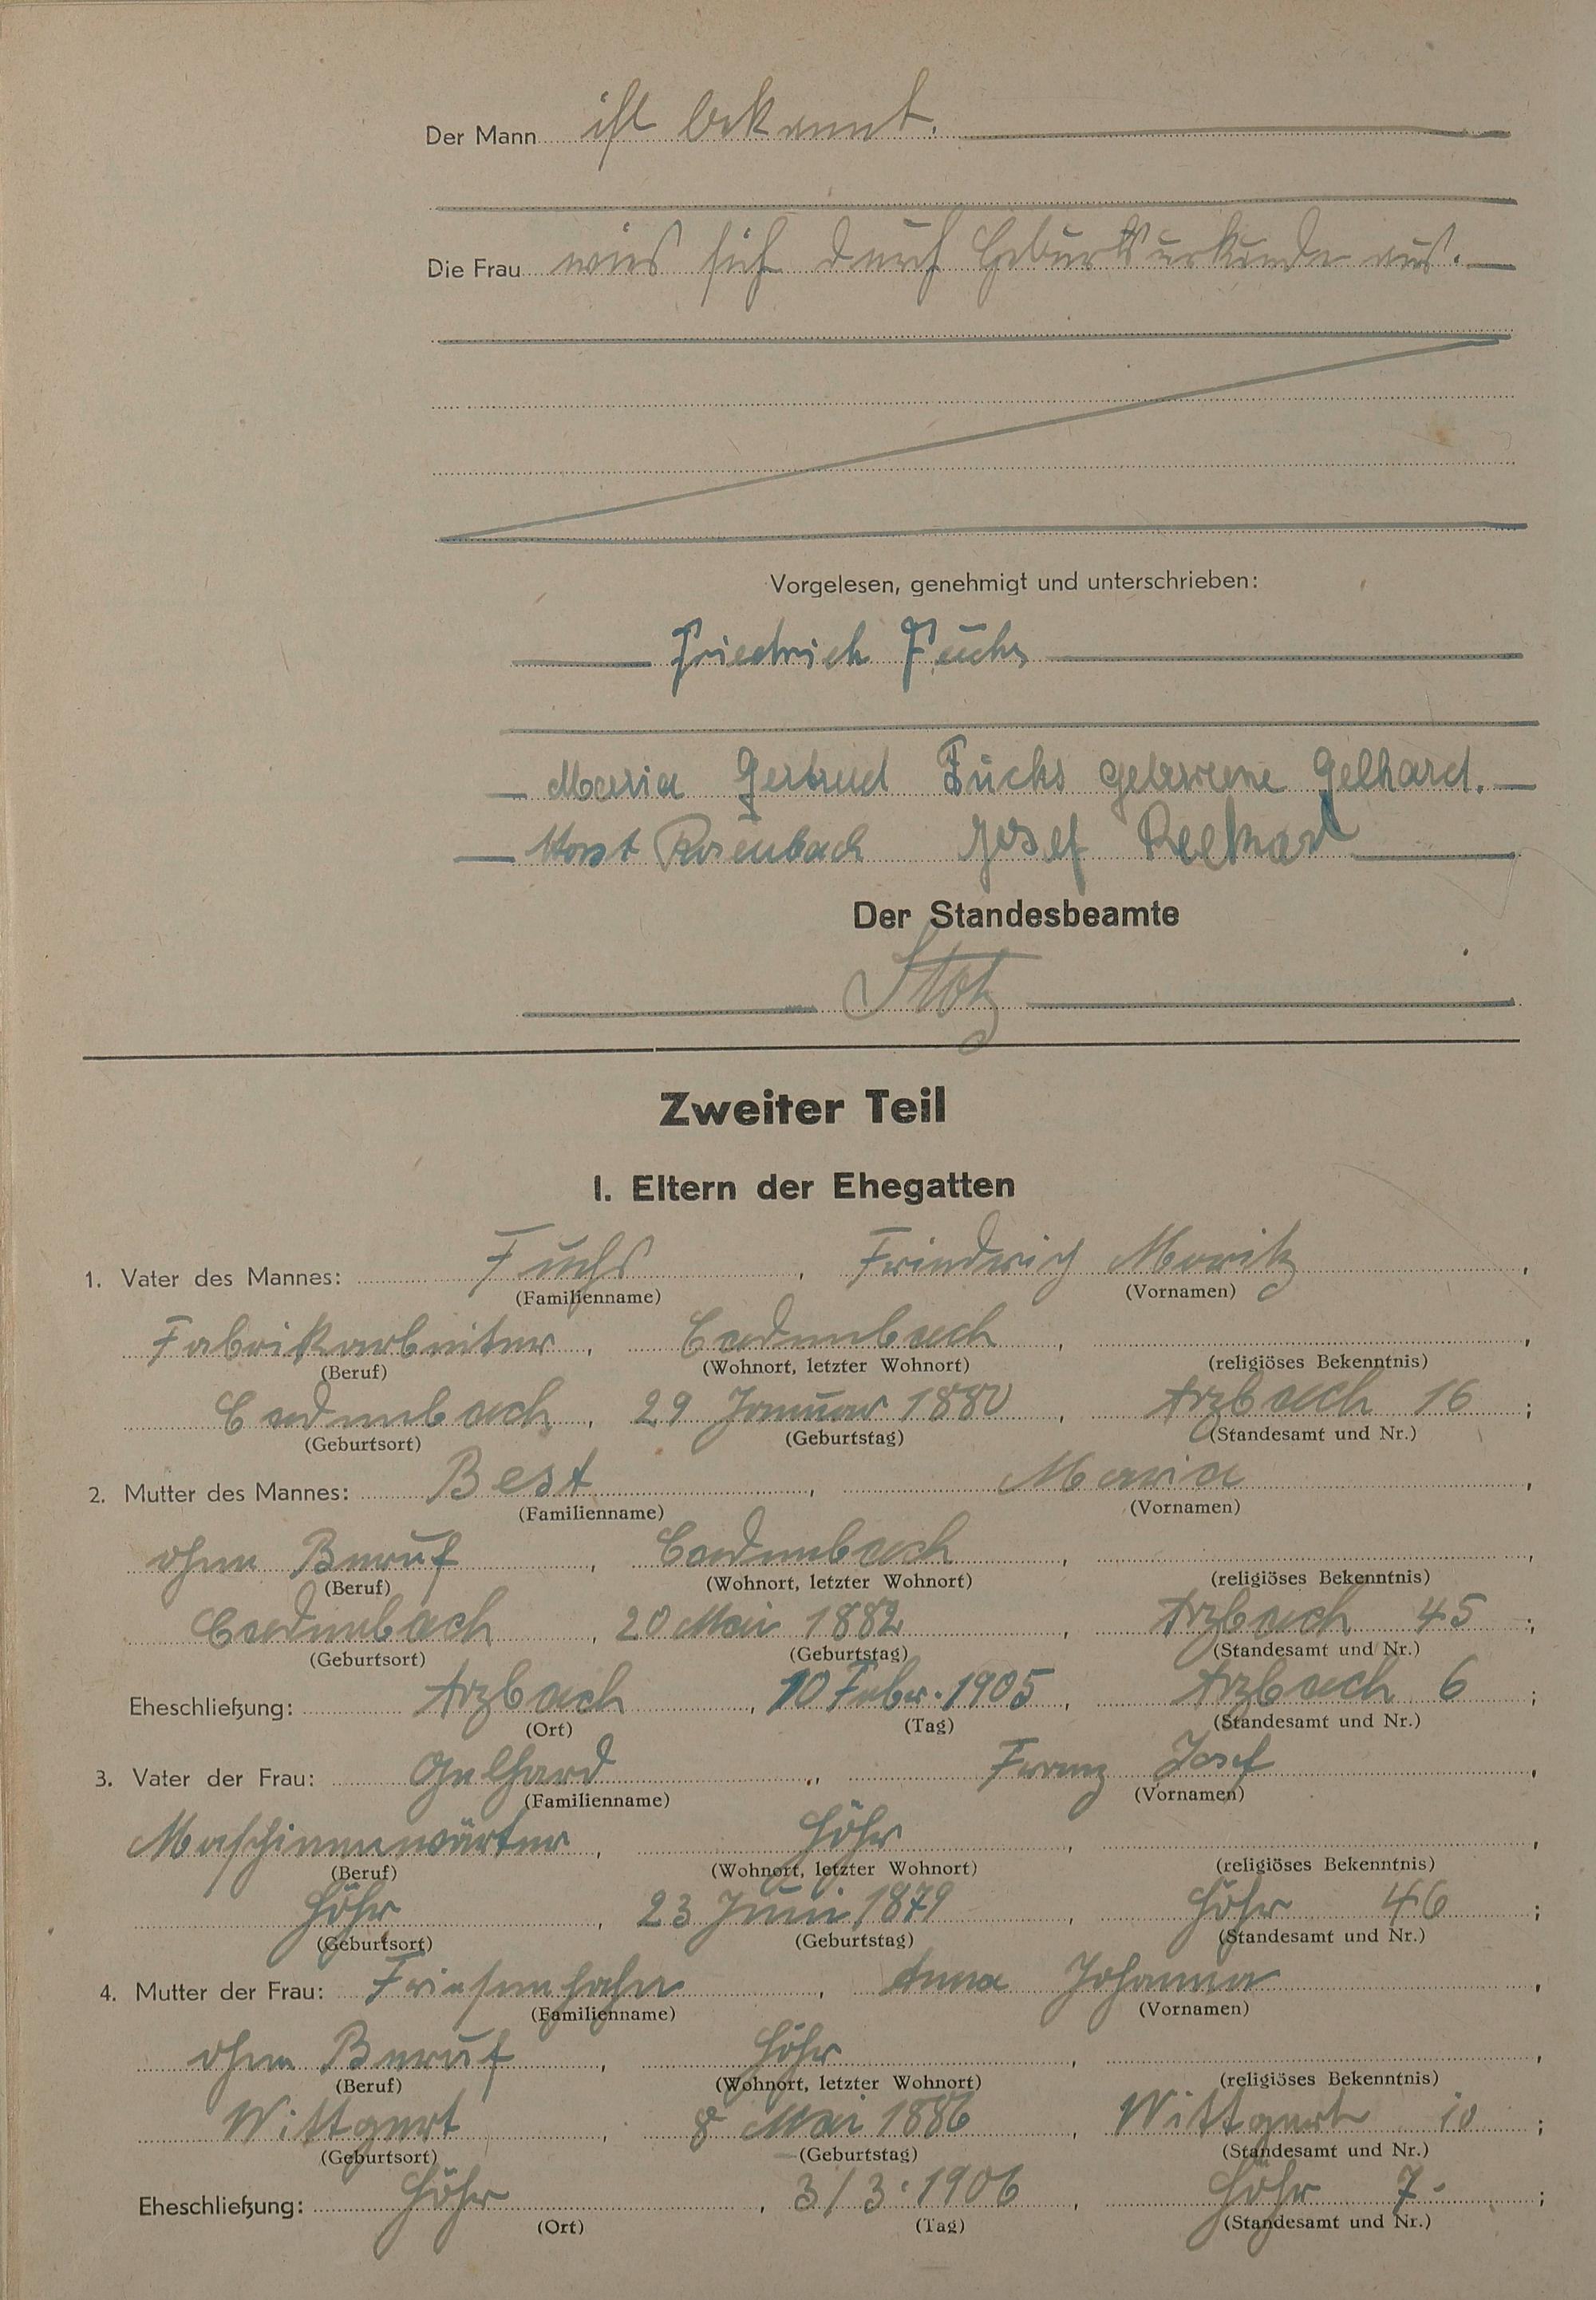 Der Mann ist bekannt.
Die Frau wies sich durch Geburtsurkunde aus.
Vorgelesen, genehmigt und unterschrieben:
Friedrich Fuchs
Maria Gertrud Fuchs geborene Gelhard.
Horst Rosenbach Josef
Der Standesbeamte
Stotz
Zweiter Teil
I. Eltern der Ehegatten
1. Vater des Mannes: Fuchs, Friederich Moritz,
(Familienname) (Vornamen)
Fabrikarbeiter, Cadenbach, ,
(Beruf) (Wohnort, letzter Wohnort) (religiöses Bekenntnis)
Cadenbach, 29 Januar 1880, Arzbach 16;
(Geburtsort) (Geburtstag) (Standesamt und Nr.)
2. Mutter des Mannes: Best, Maria,
(Familienname) (Vornamen)
ohne Beruf, Cadenbach, ,
(Beruf) (Wohnort, letzter Wohnort) (religiöses Bekenntnis)
Cadenbach, 20 Mai 1882, Arzbach 45;
(Geburtsort) (Geburtstag) (Standesamt und Nr.)
Eheschließung: Arzbach, 10 Febr. 1905, Arzbach 6;
(Ort) (Tag) (Standesamt und Nr.)
3. Vater der Frau: Gelhard, Franz Josef,
(Familienname) (Vornamen)
Maschinenwärter, Höhr, ,
(Beruf) (Wohnort, letzter Wohnort) (religiöses Bekenntnis)
Höhr, 23 Juni 1879, Höhr 46;
(Geburtsort) (Geburtstag) (Standesamt und Nr.)
4. Mutter der Frau: Friesenhahn, Anna Johanna,
(Familienname) (Vornamen)
ohne Beruf, Höhr, ,
(Beruf) (Wohnort, letzter Wohnort) (religiöses Bekenntnis)
Wittgert, 8 Mai 1886, Wittgert 10;
(Geburtsort) (Geburtstag) (Standesamt und Nr.)
Eheschließung: Höhr, 3/3. 1906, Höhr 7.;
(Ort) (Tag) (Standesamt und Nr.)